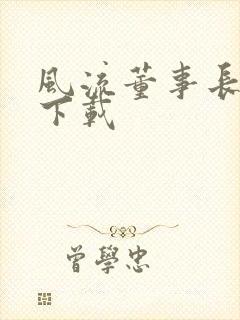 風流董事長
下載
曾學忠